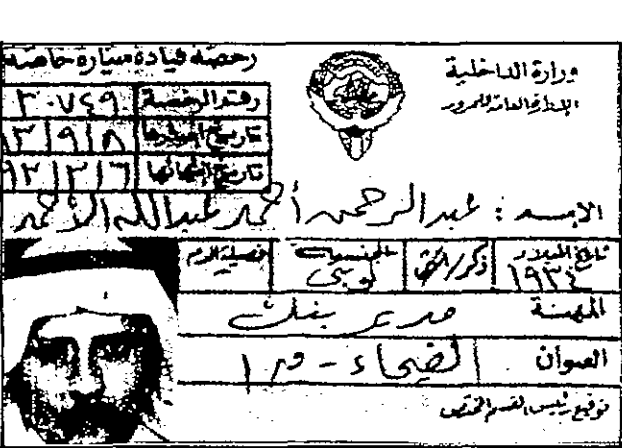 وزارة الداخلية
الإدارة العامة للمرور
رخصة قيادة سيارة خاصة
رقم الرخصة ٣٠٧٤٩
تاريخ إصدارها ١٣/٩/٨
تاريخ انتهائها ٩٢/٢/٦
الاسم : عبدالرحمن أحمد عبدالله الأحمد
تاريخ الميلاد ١٩٣٤ ذكر/انثى الجنسية كويتي فصيلة الدم
المهنة مدير بنك
العنوان الفيحاء - ق ١
توقيع رئيس القسم المختص